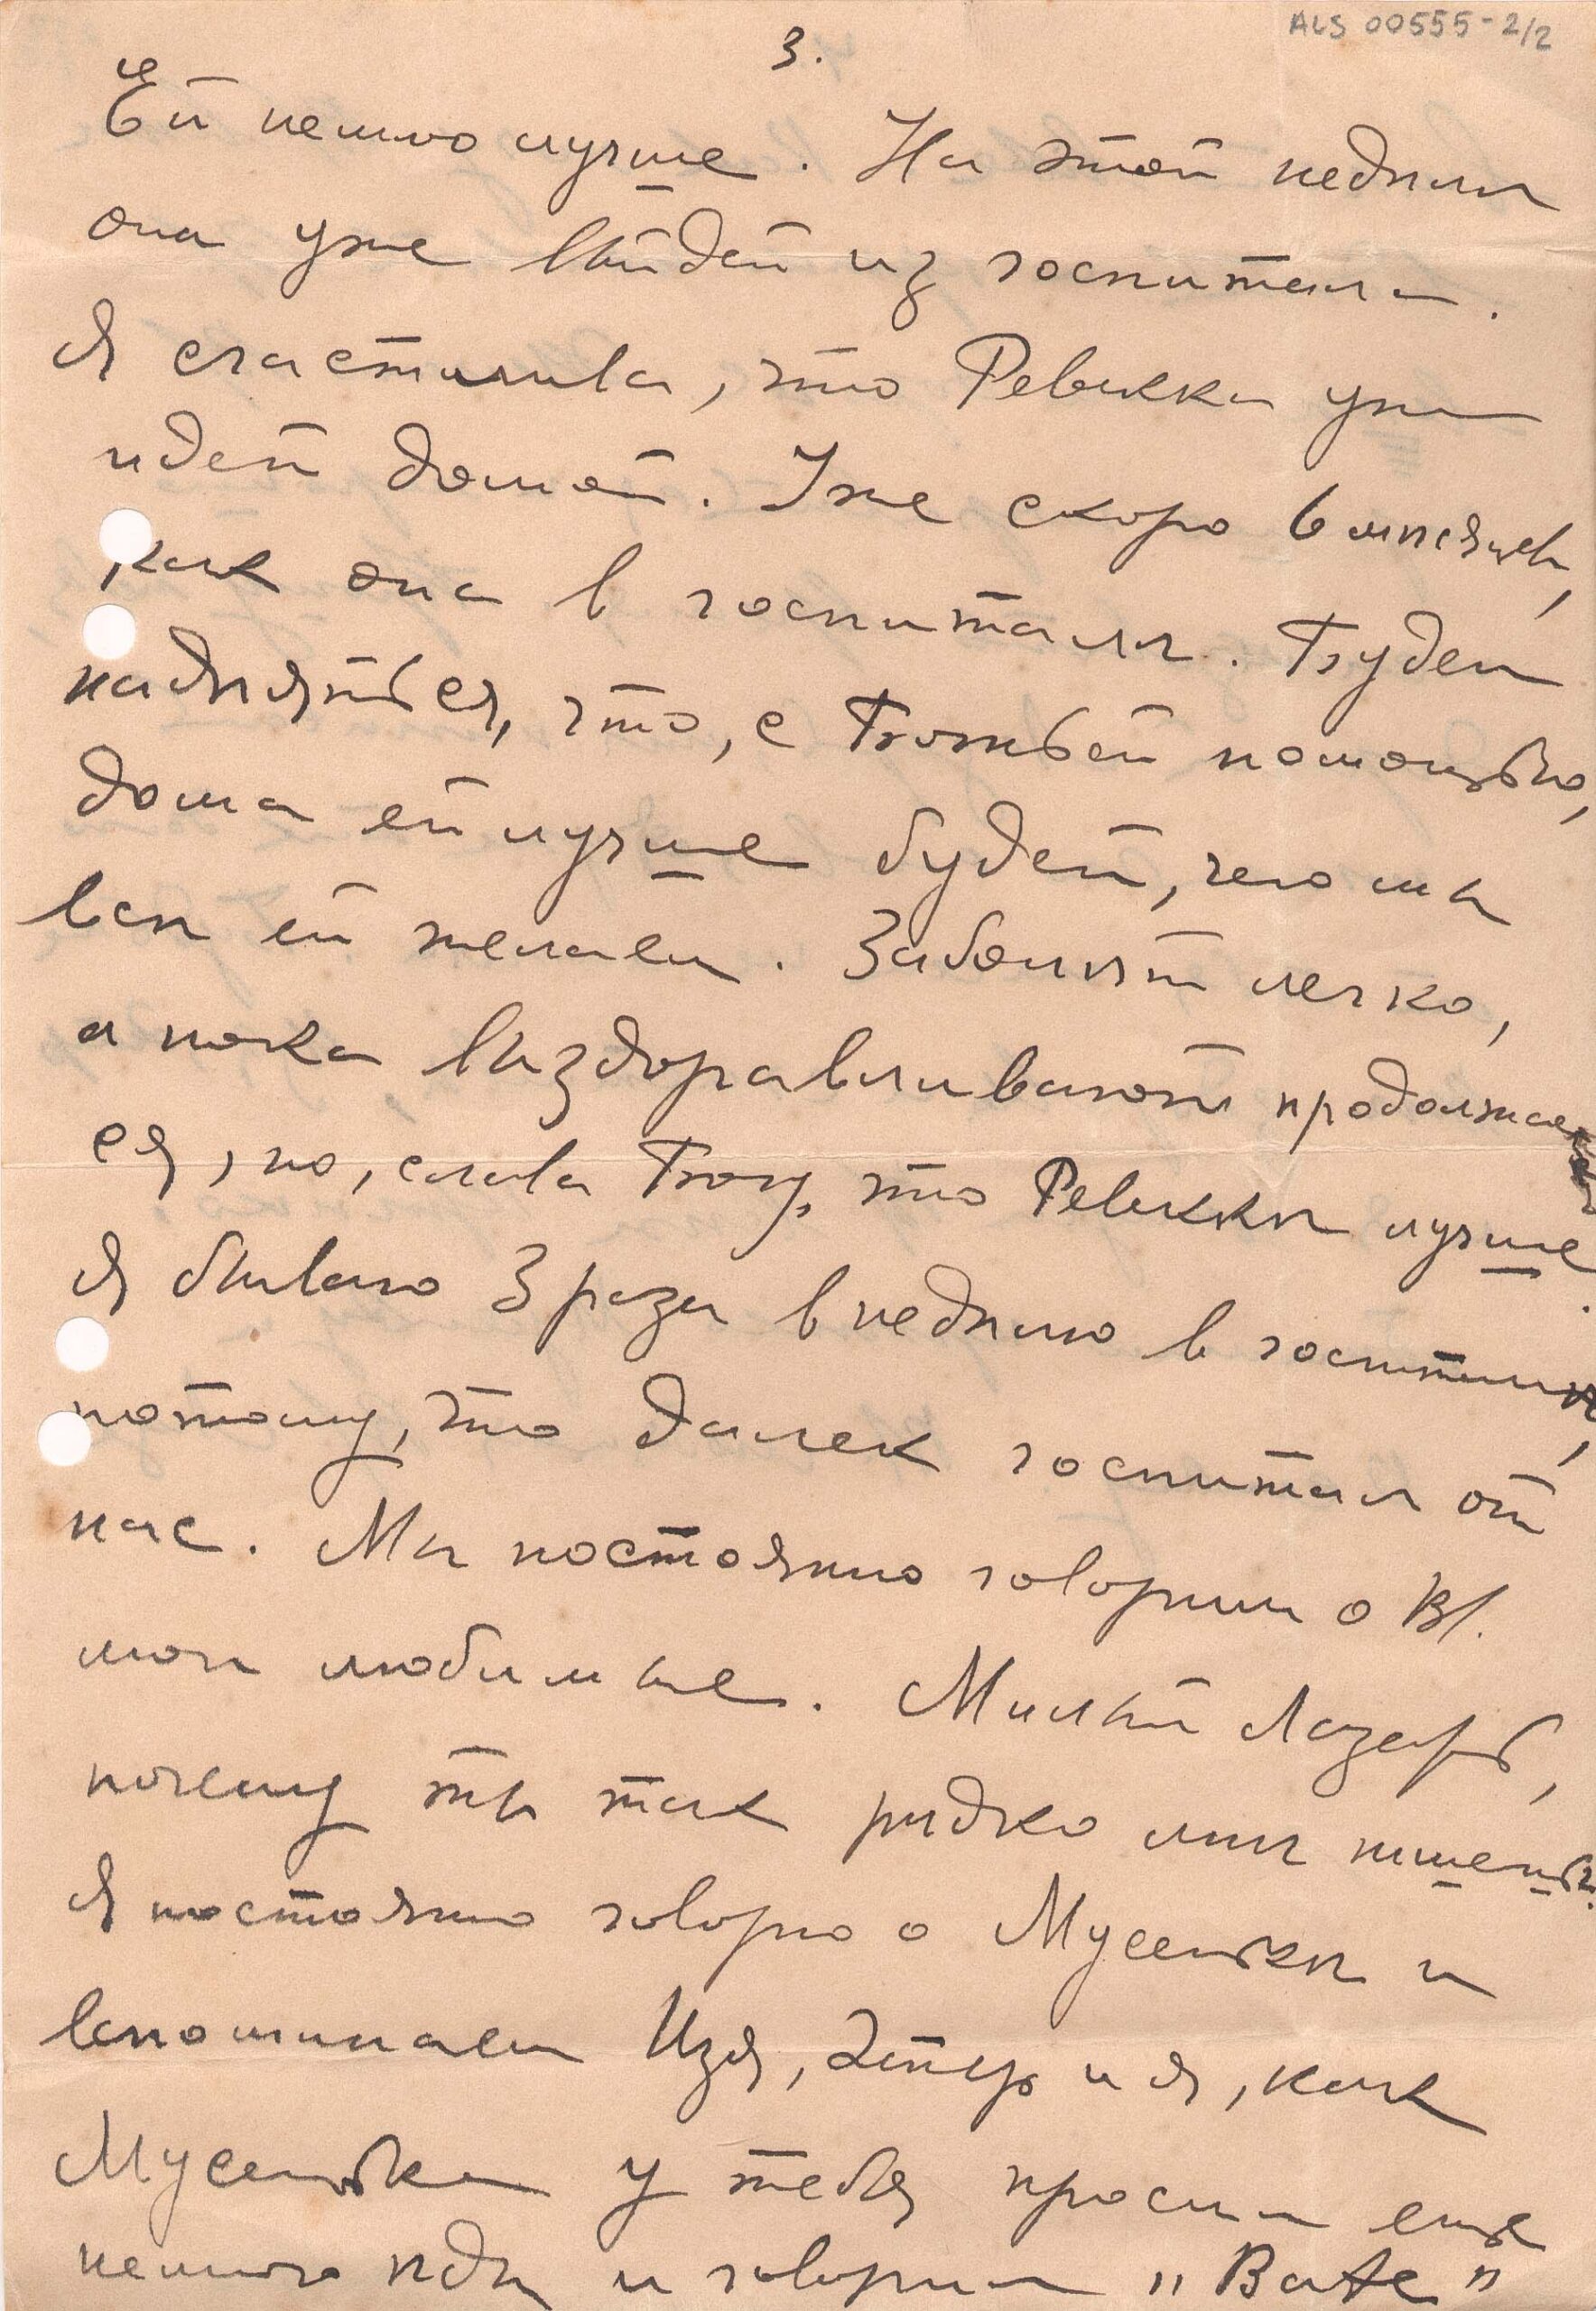 ALS 00555-2/2
3.
Ей немно лучше. На этой недѣли
она уже выйдет из госпиталя.
Я счастлива, что Ревекка уже
идет домой. Уже скоро 6 мѣсяцев,
как она в госпиталѣ. Будем
надѣяться, что, с Божьей помощью,
дома ей лучше будет, чего мы
всѣ ей желаем. Заболѣт легко,
а пока выздоравливают продолжает
ся, но, слава Богу, что Ревеккѣ лучше.
Я бываю 3 раза в недѣлю в госпиталѣ,
потому, что далек госпитал от
нас. Мы постоянно говорим о Вы.
мои любимые. Милый Лазарь,
почему ты так рѣдко мнѣ пишешь?
Я постоянно говорю о Мусенькѣ и
вспоминаем Изя, Этер и я, как
Мусенька у тебя просил еще
немного ѣды и говорил "Bate"